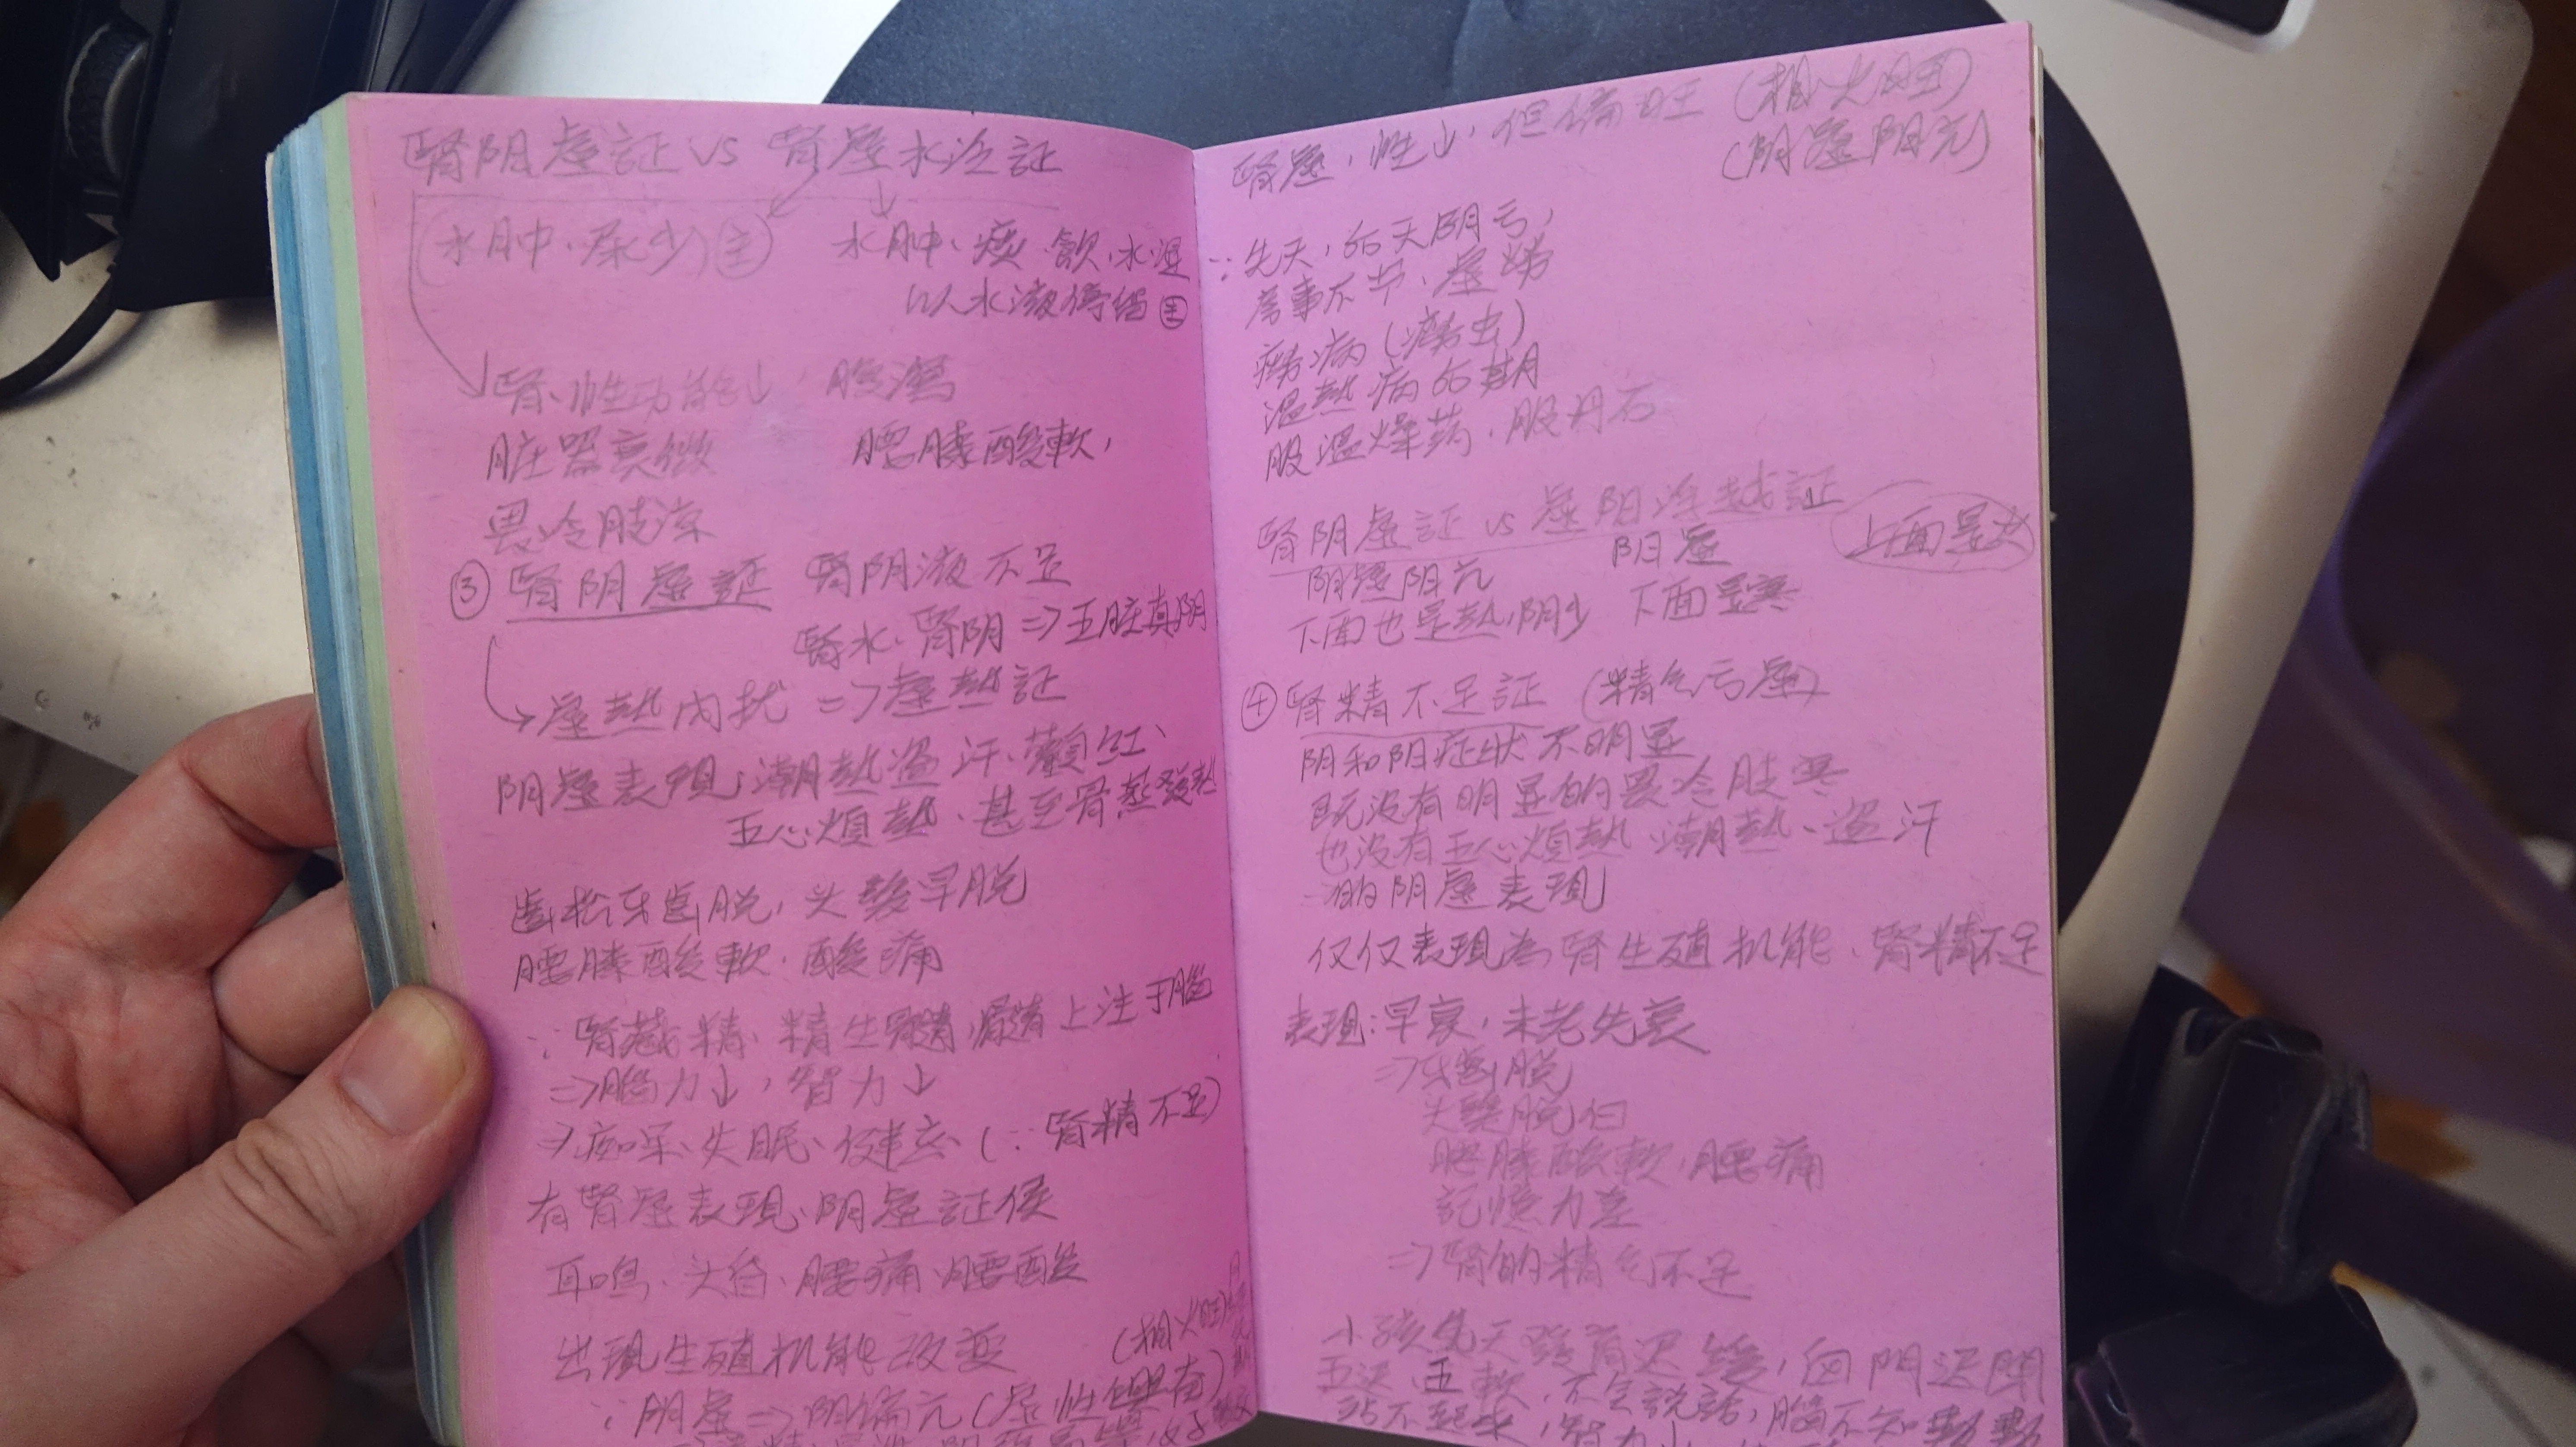 腎阴虚証 vs 腎虚水泛証
(水肿、尿少)主 水肿、痰、飲、水湿
以水液停留主
腎、性功能↓、腹瀉
脏器衰微 腰膝酸軟,
畏冷肢凉
③ 腎阴虚証 腎阴液不足
腎水、腎阴⇒五脏真阴
→虚熱内扰 ⇒虚熱証
阴虚表現,潮熱盗汗、颧紅、
五心煩熱、甚至骨蒸發熱
齒松牙齒脱,头髮早脱
腰膝酸軟、酸痛
∵腎藏精、精生髓,髓上注于腦
⇒腦力↓,智力↓
⇒痴呆、失眠、健忘(∵腎精不足)
有腎虚表現、阴虚証侯
耳鳴、头昏、腰痛、腰酸
出現生殖机能改变
(相火旺)
∵阴虚⇒阳偏亢(虚性興奋)
腎虚,性↓,但偏旺(相火旺)
(阴虚阳亢)
∵先天,后天阴亏,
房事不节、虚劳
痨病(痨虫)
温熱病后期
服温燥药、服丹石
腎阴虚証 vs 虚阳浮越証
阴虚阳亢 阳虚 上面是火
下面也是熱,阴少 下面是寒
④ 腎精不足証(精气亏虚)
阴和阳症状不明显
既没有明显的畏冷肢寒
也没有五心煩熱、潮熱、盗汗
的阴虚表現
仅仅表現為腎生殖机能、腎精不足
表現:早衰,未老先衰
⇒牙齒脱
头髮脱白
腰膝酸軟,腰痛
記憶力差
⇒腎的精气不足
小孩先天發育迟缓,囟門迟閉
五迟、五軟,不会說話,腦不知
站不起來,智力↓